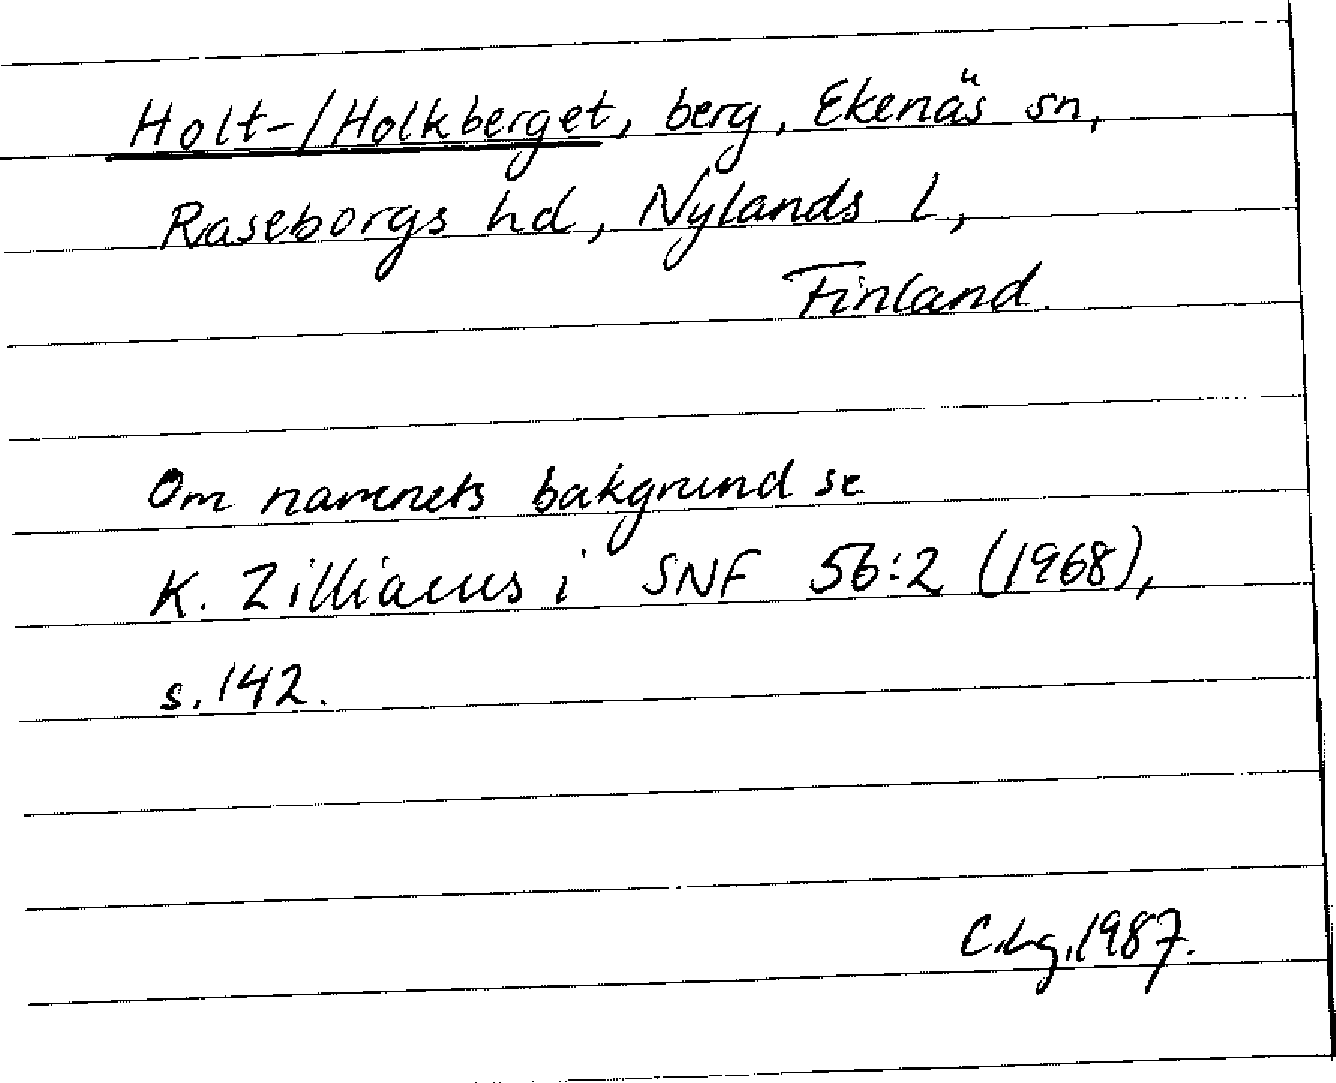 Holt-/Holkberget, berg, Ekenäs sn,
Raseborgs hd, Nylands l,
Finland.
Om namnets bakgrund se
K. Zilliacus i SNF 56:2 (1968),
s. 142.
C.Lg. 1987.